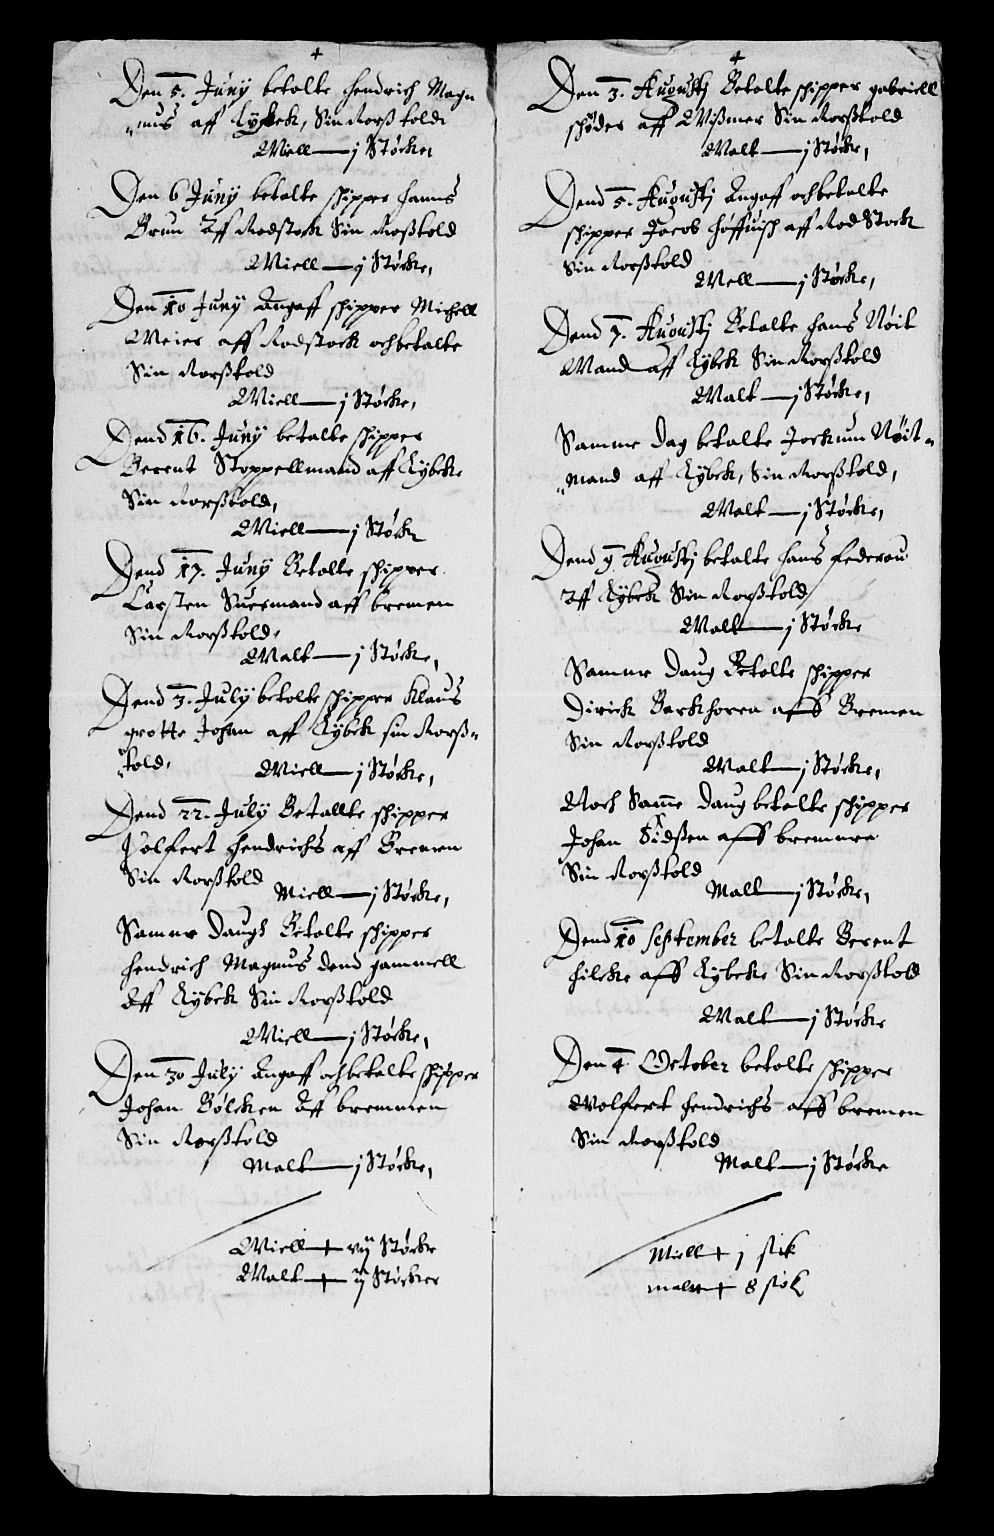 +
Den 5. Juny betolte hendrich Magn
„nus aff Lybek, Sin Korßtold
Miell — j Støcke,
Den 6 Juny betolte skipper hanns
Brun aff Rodstock Sin Korßtold
Miell — j Støcke,
Den 10 Juny Angaff skipper Michell
Meier aff Rodstock och betalte
Sin Korßtold
Miell — j Støcke,
Dend 16. Juny betalte skipper
Berent Stoppellmand aff Lybeke
Sin Korßtold,
Miell — j Støck
Dend 17. Juny Betolte skipper
Carsten Suermand aff bremen
Sin Korßtold,
Malt — j Støcke,
Dend 3. July betolte skipper Klaus
grotte Johan aff Lybek sin Korß„
„told,
Miell — j Støcke,
Dend 22. July Betallte skipper
Volfert hendrichs aff Bremen
Sin Korßtold
Miell — j Støcke,
Samme Daugh Betolte skipper
hendrich Magnus dend gammell
Aff Lybek Sin Korßtold
Miell — j Støcke,
Den 30 July Angaff och betalte skipper
Johan Bølcken Aff bremmen
Sin Korßtold
Malt — j Støcke,
Miell + vij Støcke
Malt + ij Støcker
+
Den 3. Augustj Betolte skipper gabriell
skøder aff Wißmer Sin Korßtold
Malt — j Støcke,
Dend 5. Augustj Angaff och betalte
skipper Jacob høffuisk aff Rod Stock
Sin Korßtold
Mell — j Støcke,
Dend 7. Augustj Betolte hans Nøit
Mand aff Lybek Sin Korßtold
Malt — j Støcke,
Samme Dag betalte Jochum Nøit„
„mand aff Lybek, Sin Korßtold,
Malt — j Støcke,
Dend 9 Augustj betalte hans federau
Aff Lybek Sin Korßtold
Malt — j Støcke
Samme Daug Betolte skipper
Dirick Barkhoren affs Bremen
Sin Korßtold
Malt — j Støcke,
Noch Samme Daug betolte skipper
Johan Sidßen affs bremmen
Sin Korßtold
Malt — j Støcke,
Dend 10 September betalte Berent
hilcke affs Lybeke Sin Korßtold
Malt — j Støcke
Den 4 October betolte skipper
Wolfert hendrichs affs bremen
Sin Korßtold
Malt — j Støcke
Miell + 1 støk
malt + 8 støk